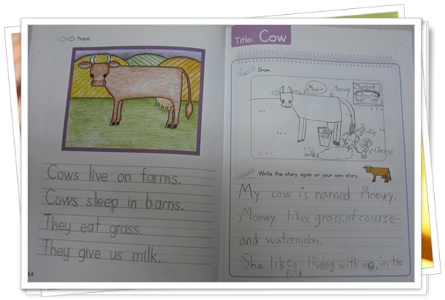 Trace
Cows live on farms.
Cows sleep in barns.
They eat grass.
They give us milk.
Title: Cow
Draw.
Moo~
Mooey
milk
cheese
Write the story again or your own story.
My cow is named Mooey.
Mooey likes grass, of course-
and watermelon.
She likes with me, in the